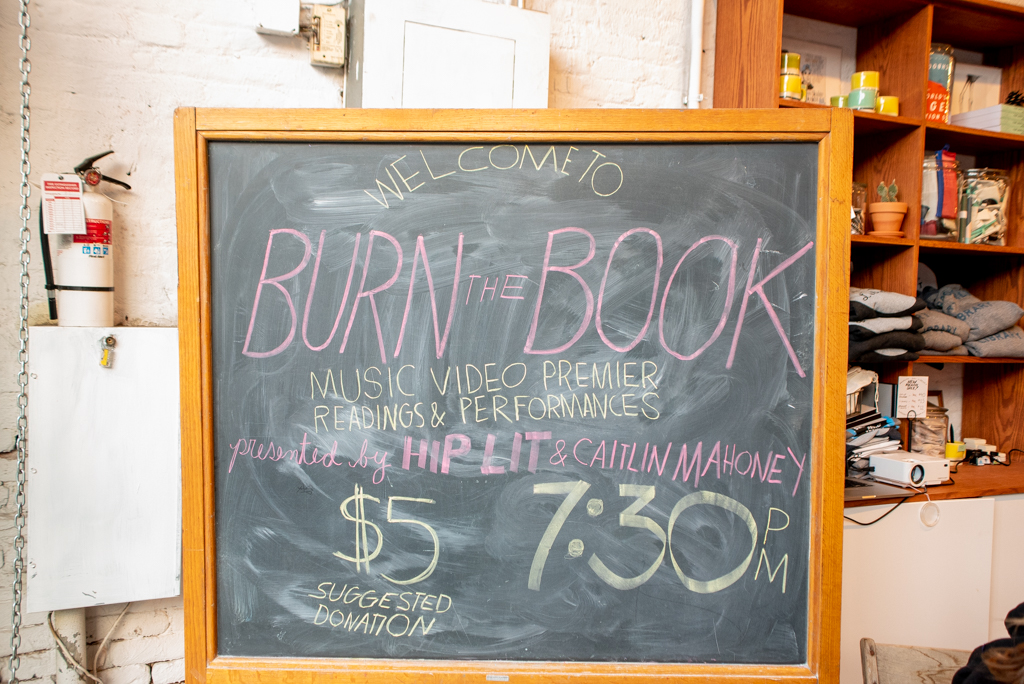 WELCOME TO
BURN THE BOOK
MUSIC VIDEO PREMIER
READINGS & PERFORMANCES
presented by HIP LIT & CAITLIN MAHONEY
$5
SUGGESTED
DONATION
7:30 PM